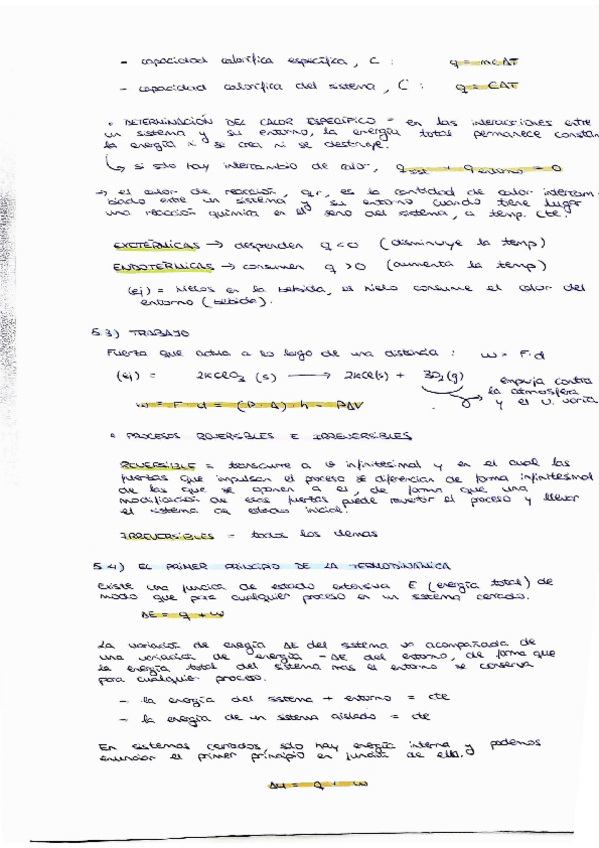 - capacidad calorífica específica, c : q = mcΔT
- capacidad calorífica del sistema, C : q = CΔT
• DETERMINACIÓN DEL CALOR ESPECÍFICO = en las interacciones entre
un sistema y su entorno, la energía total permanece constan
la energía ni se crea ni se destruye.
↳ si solo hay intercambio de calor, qsist + qentorno = 0
→ el calor de reacción, qr, es la cantidad de calor intercam-
biado entre un sistema y su entorno cuando tiene lugar
una reacción química en el seno del sistema, a temp. cte.
EXOTÉRMICAS → desprenden q<0 (disminuye la temp)
ENDOTÉRMICAS → consumen q>0 (aumenta la temp)
(ej) = hielos en la bebida, el hielo consume el calor del
entorno (bebida).
5.3) TRABAJO
Fuerza que actua a lo largo de una distancia : w = F·d
(ej) = 2KClO3 (s) → 2KCl(s) + 3O2(g)
empuja contra
la atmósfera
y el U. varía
w = F·d = (P·A)·h = PΔV
• PROCESOS REVERSIBLES E IRREVERSIBLES
REVERSIBLE = transcurre a v infinitesimal y en el cual las
fuerzas que impulsan el proceso se diferencian de forma infinitesimal
de las que se oponen a el, de forma que una
modificación de esas fuerzas puede revertir el proceso y llevar
el sistema a estado inicial.
IRREVERSIBLES = todos los demas
5.4) EL PRIMER PRINCIPIO DE LA TERMODINÁMICA
Existe una función de estado extensiva E (energía total) de
modo que para cualquier proceso en un sistema cerrado.
ΔE = q + w
La variación de energía ΔE del sistema va acompañada de
una variación de energía - ΔE del entorno, de forma que
la energía total del sistema mas el entorno se conserva
para cualquier proceso.
- la energía del sistema + entorno = cte
- la energía de un sistema aislado = cte
En sistemas cerrados, solo hay energía interna y podemos
enunciar el primer principio en función de ella.
ΔU = q + w